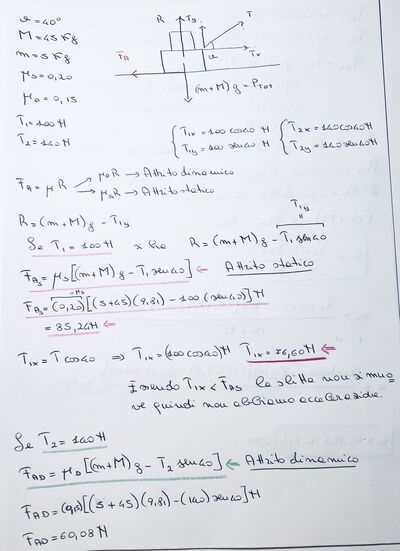 ϑ = 40°
M = 45 Kg
m = 5 Kg
μs = 0,20
μD = 0,15
T1 = 100 N
T2 = 140 N
R Ty T
FA ϑ Tx
(m+M)g = PTOT
{ T1x = 100 cos40 N { T2x = 140 cos40 N
T1y = 100 sen40 N T2y = 140 sen40 N
FA = μR → μD R → Attrito dinamico
→ μs R → Attrito statico
R = (m+M)g - T1y
T1y
Se T1 = 100 N si ha R = (m+M)g - T1 sen40
FAs = μs[(m+M)g - T1 sen40] ← Attrito statico
μs
FAs = (0,20)[(5+45)(9,81) - 100 (sen40)] N
= 85,24 N ←
T1x = T cos40 ⇒ T1x = (100 cos40) N T1x = 76,60 N
Essendo T1x < FAs la slitta non si muo=
ve quindi non abbiamo accelerazione.
Se T2 = 140 N
FAD = μD[(m+M)g - T2 sen40] ← Attrito dinamico
FAD = (0,15)[(5+45)(9,81) - (140) sen40] N
FAD = 60,08 N